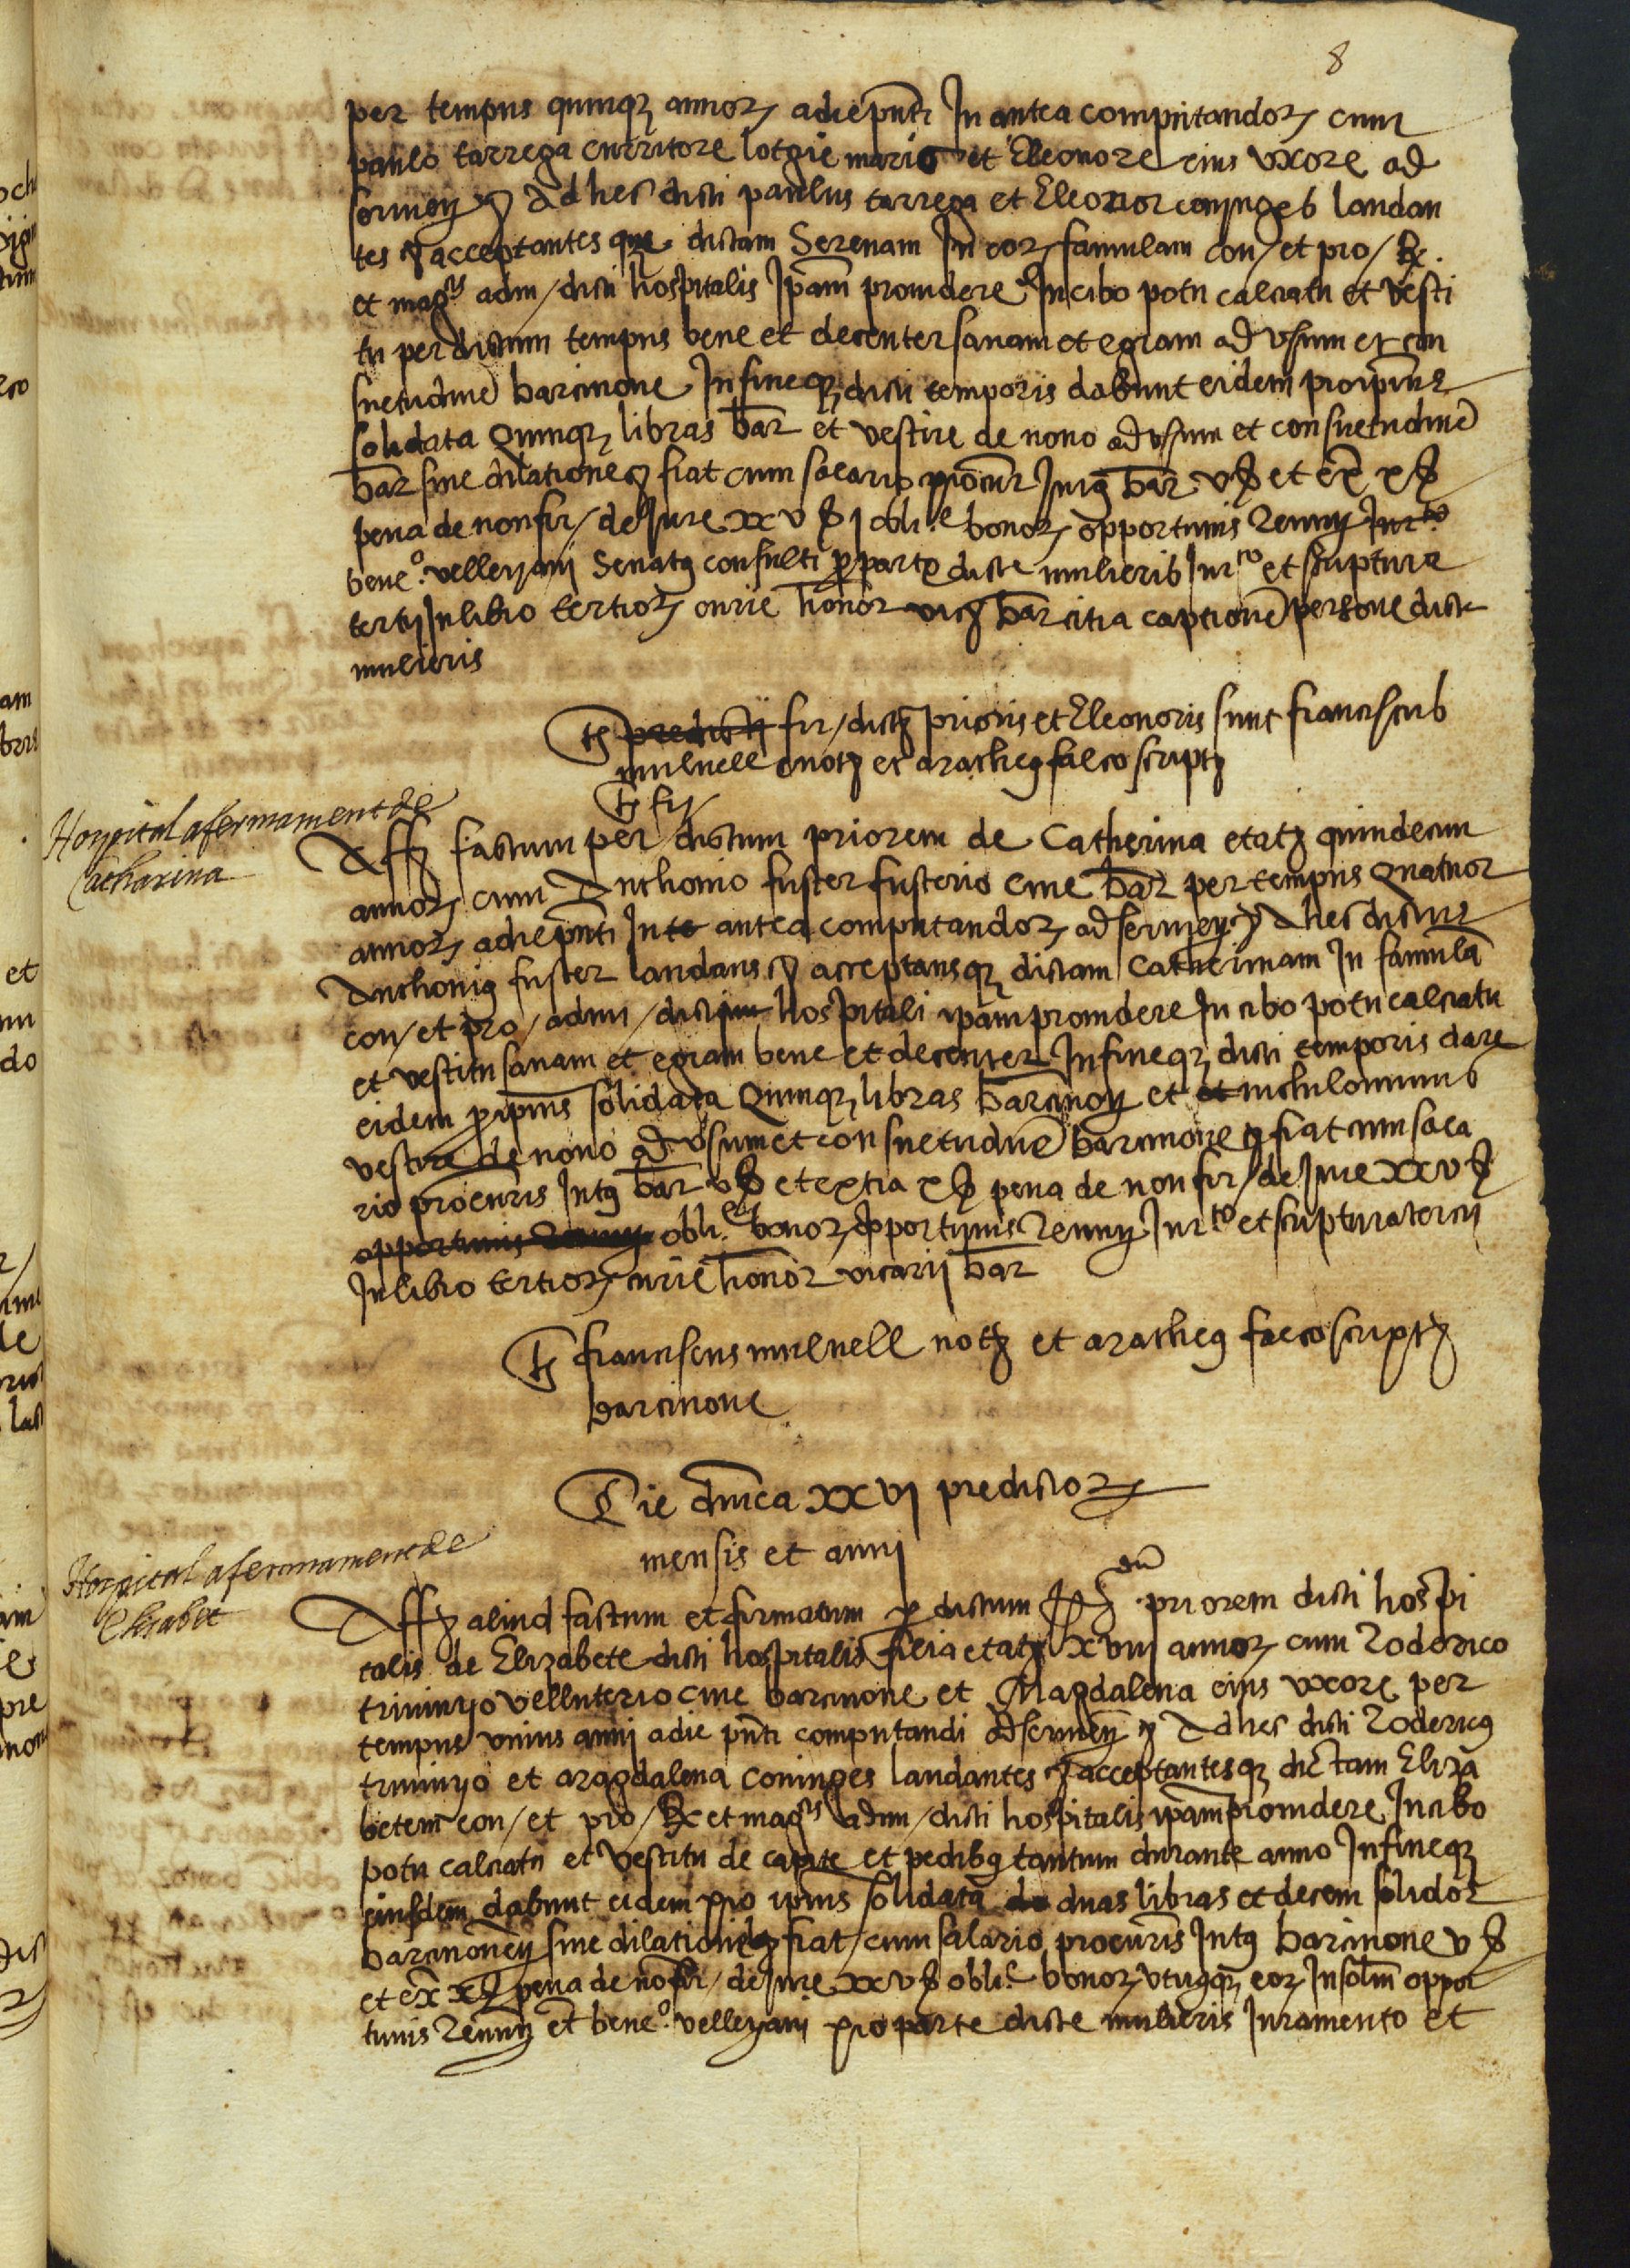 8
per tempus quinqz annorz adiepnti In antea computandorz cum
paulo tarrega curritore lotgie maris et Eleonore eius vxore ad
seruiendum Adhec dicti paulus tarrega et Eleonor coniuges laudan
tes acceptantesque dictam Serenam In eorz famulam con/ et pro/ Rx.
et magcis adm/ dicti hospitalis Ipam prouidere In cibo potu calciatu et vesti
tu per dictum tempus bene et decenter sanam et egram ad vsum et con
suetudine barcinone Infineqz dicti temporis dabunt eidem pro ipius
solidata Quinqz libras bar et vestire de nouo ad vsum et consuetudine
bar sine dilatione fiat cum salario procur Intus bar v ß et ex x ß
pena de non fir/ de Jure xxv ß obli.e bonorz opportunis Renuny Jur.to
bene.o velleyani Senatus consulti p parte dicte mulieris Jur.to et scriptura
tertij In libro tertiorz curie honor vicarij bar citra captione persone dicte
mulieris
Ts predicti fir/ dictz prioris et Eleonoris sunt franciscus
mulnell notz et matheus falco scriptz
Ts fir
Hospital afermament de
Catharina
Affz factum per dictum priorem de Catherina etatz quindecim
annorz cum Anthonio fuster fusterio ciue bar per tempus Quatuor
annorz adiepnti In te antea computandorz ad seruiendum Adhec dictus
Anthonius fuster laudans acceptansqz dictam Catherinam In famula
con/ et pro/ admi/ dicti hospitali ipam prouidere In cibo potu calciatu
et vestitu sanam et egram bene et decenter Infineqz dicti temporis dare
eidem p ipius solidata Quinqz libras barcinon et et nichilominus
vestire de nouo ad vsum et consuetudine barcinone fiat cum sala
rio procuris Intus bar v ß et extra x ß pena de non fir/ de Jure xxv ß
opportunis Renuny obli.e bonorz opportunis Renuny Jur.to et scriptura tercij
In libro tertiorz curie honor vicarij bar
Ts franciscus mulnell notz et matheus falco scriptz
barcinone
Die dnica xxvj predictorz
mensis et anni
Hospital afermament de
Elisabet
Affz aliud factum et firmatum p dictum dnm priorem dicti hospi
talis de Elizabete dicti hospitalis filia etatz xviij annorz cum Roderico
triuinyo velluterio ciue barcinone et Magdalena eius vxore per
tempus vnius anni adie pnti computandi ad seruien Adhec dicti Rodericus
triuinyo et Magdalena coniuges laudantes acceptantesqz dictam Eliza
betem con/ et pro/ Rx et magcis adm/ dicti hospitalis ipam prouidere In cibo
potu calciatu et vestitu de capite et pedibus tantum durante anno Infineqz
eiusdem dabunt eidem pro ipius solidata do duas libras et decem solidor
barcinonen sine dilatione fiat cum salario procuris Intus barcinone v ß
et ex x ß pena de no fir/ de Jure xxv ß obli.e bonorz vtriusqz eorz Insolm oppor
tunis Renuny et bene.o velleyani pro parte dicte mulieris Juramento et